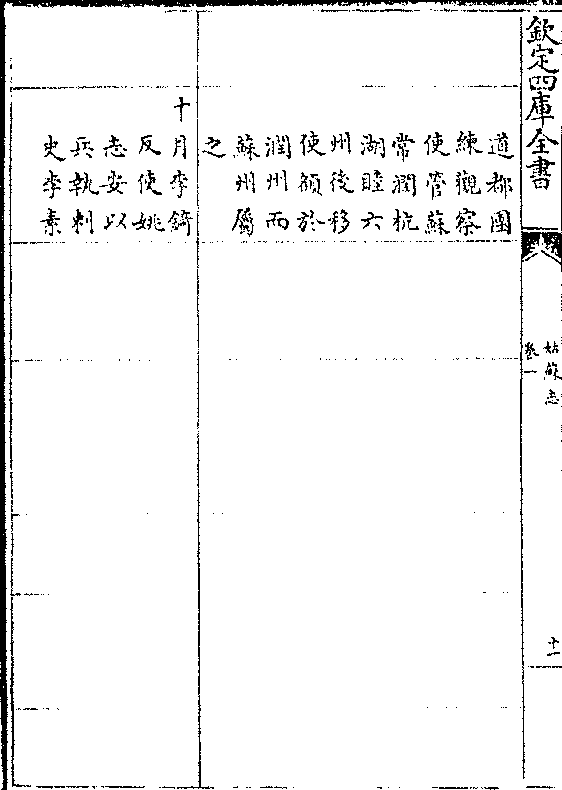 欽定四庫全書
姑蘇志
卷一
十一
道都團
練觀察
使管蘇
常潤杭
湖睦六
州後移
使額於
潤州而
蘇州屬
之
十月李錡
反使姚
志安以
兵執刺
史李素